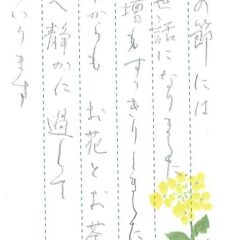 の節には
世話になりました
壇もすっきりしました
からも お花とお茶
へ静かに過して
いります